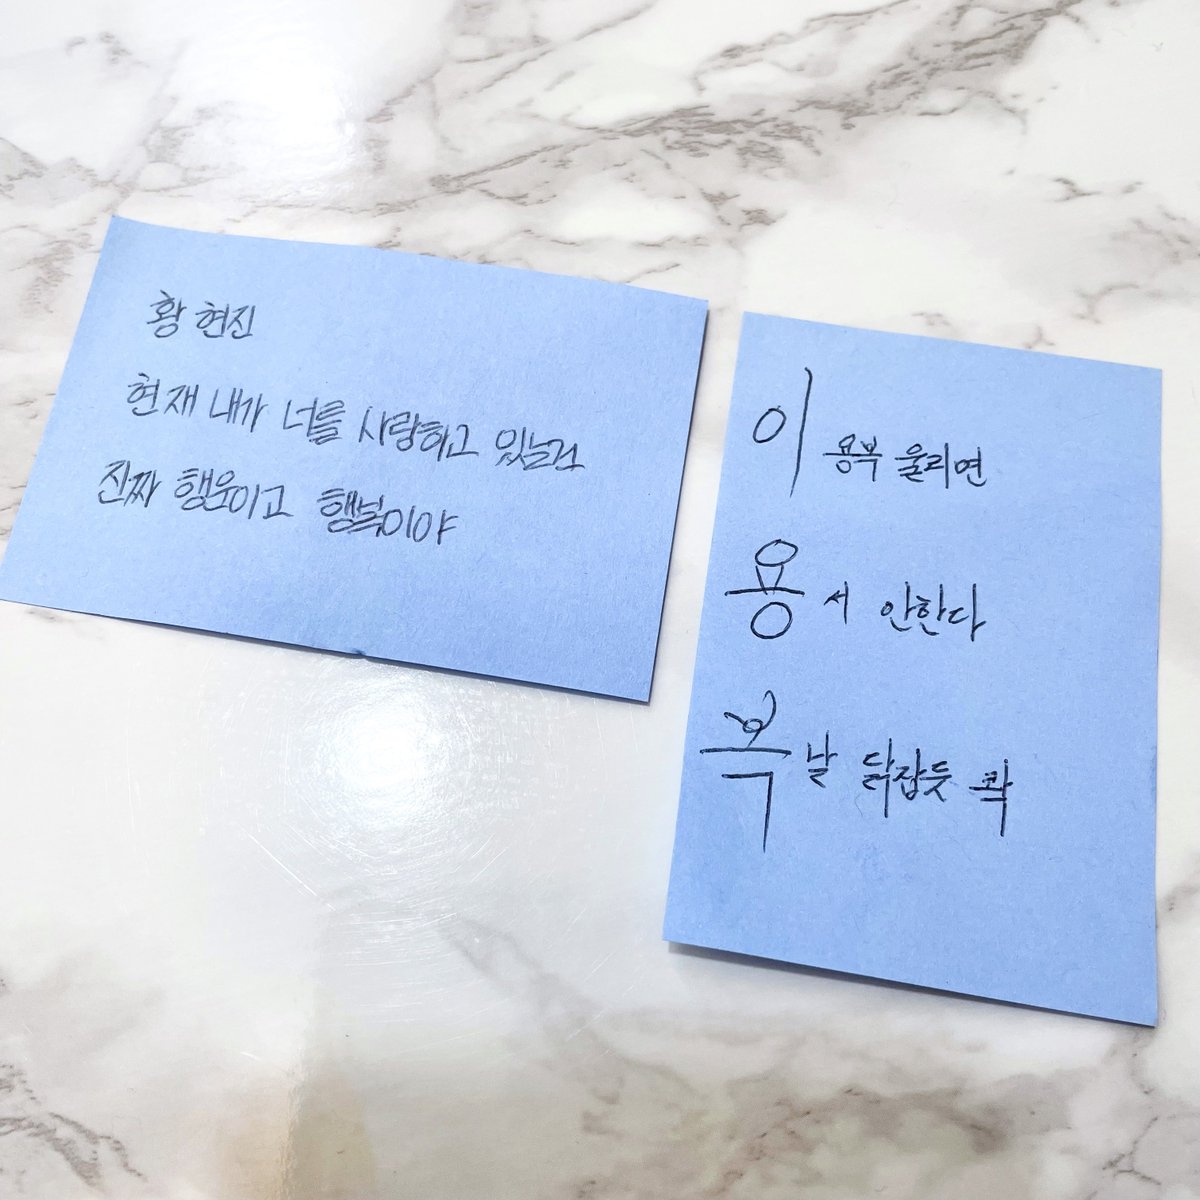 황 현진
현재 내가 너를 사랑하고 있는건
진짜 행운이고 행복이야
이 용부 울리면
용서 안한다
복날 닭잡듯 콱